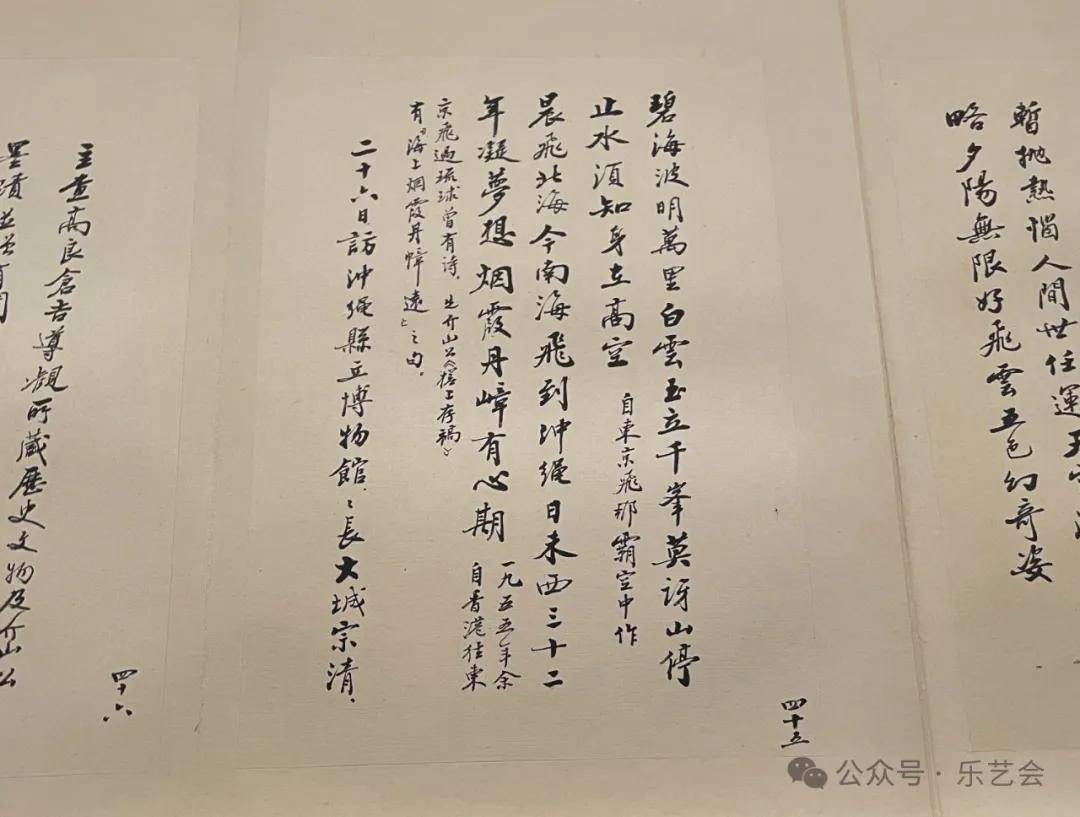 暫抛熱惱人間世任運
略夕陽無限好飛雲五色幻奇姿
碧海波明萬里白雲玉立千峯莫訝山停
止水須知身在高空
自東京飛那霸空中作
晨飛北海今南海飛到冲绳日未西三十二
年凝夢想烟霞丹嶂有心期
一九五五年余
自香港往東
京飛過琉球曾有诗,先介山公《槎上存稿》
有“海上烟霞丹嶂遠”之句。
二十六日訪冲绳縣立博物館,〻長大城宗清,
四十五
主查高良倉吉導觀所藏歷史文物及介山公
墨蹟並
四十六
公众号·乐艺会